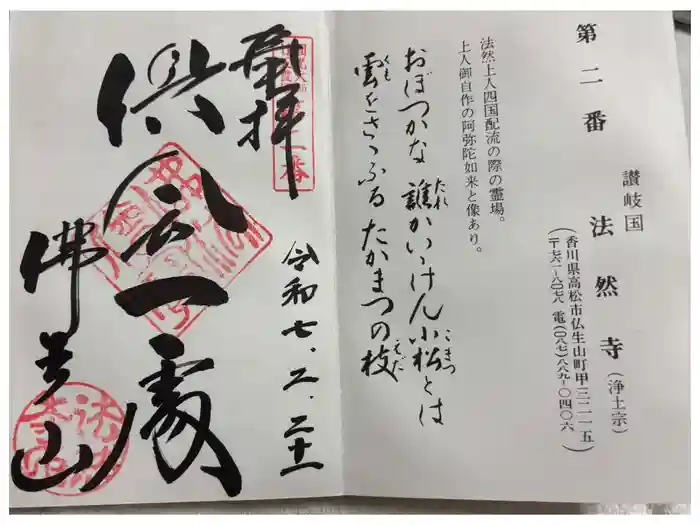 第二番
讃岐国
法然寺(浄土宗)
(香川県高松市仏生山町甲三二一五
〒七六一-八〇七八 電(〇八七)八八九-〇四〇六)
法然上人四国配流の際の霊場。
上人御自作の阿弥陀如来と像あり。
おぼつかな誰かいゝけん小松とは
たれ
こまつ
雲をさゝふるたかまつの枝
くも
えだ
奉拝
二番
倶会一処
佛生山
令和七.二.二十一